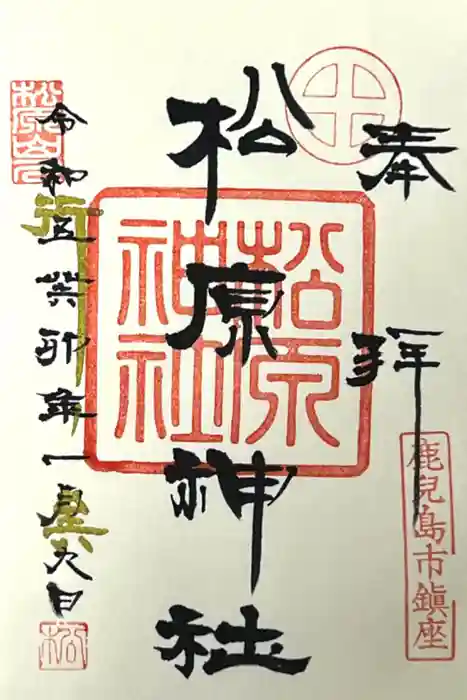 奉拝
鹿兒島市鎮座
松原神社
松原神社
令和五癸卯年一月九日
松